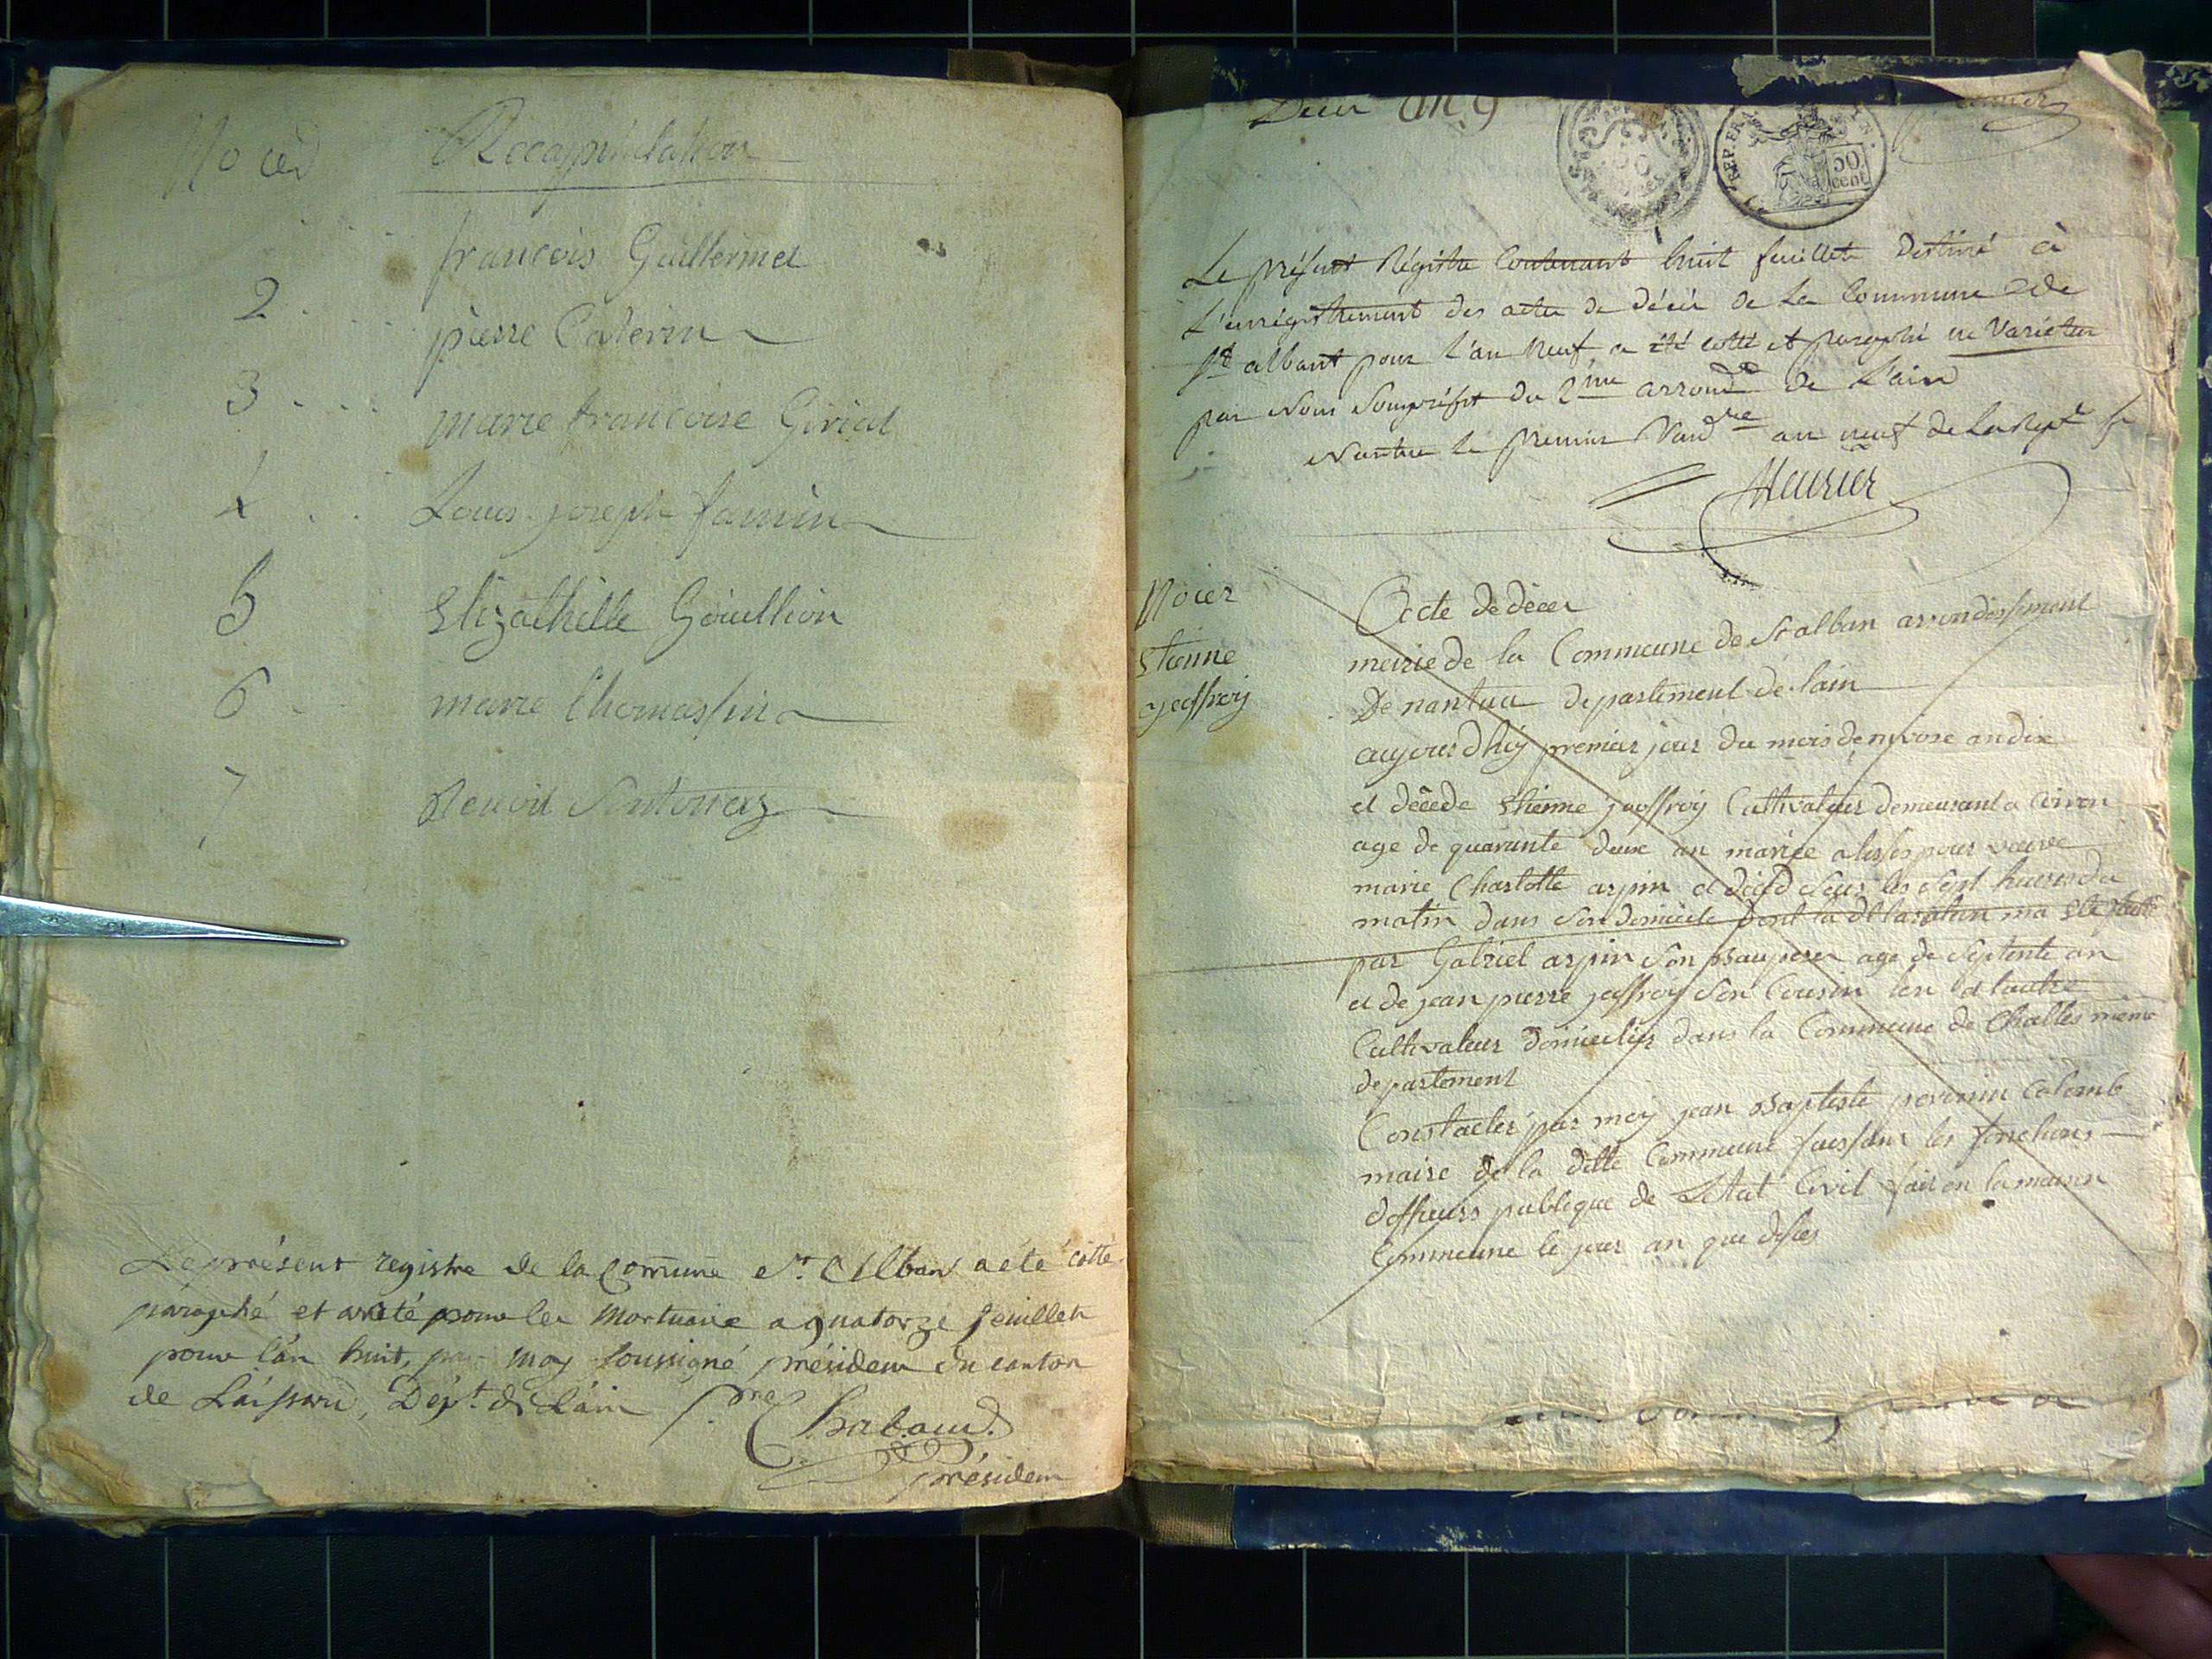 No ier Recapitulation
françois Guillermet
2 pierre Caterin
3 marie françoise Girial
4 Louis joseph famin
5 Elizathille Gouillion
6 marie Thomassin
7 Benoit
Le présent registre de la Commune St. Alban a été cotté
paraphé et arreté pour les Mortuaire a quatorze feuillets
pour l'an huit, par moy soussigné président du canton
de , Dépt. de l'ain
Chabaud
présiden
Décès an 9
REP. FRA
50
cent
Le présent Régistre Contenant huit feuillets Destiné à
L'enrégistrement des actes de décès de La Commune de
St albant pour l'an neuf, a été cotté et paraphé ne Varietur
par Nous Souspréfet du 2me arrondt de L'ain
Nantua le premier Vendre an neuf de La Repe fse
No ier
Etienne
jeoffroy
Acte de décer
mairie de la Commune de St alban arrondissement
De nantua departement de lain
aujourdhuy premier jour du mois de nivose an dix
et décede Etienne jeoffroy Cultivateur demeurant a
age de quarante deux an mariée a lesses pour veuve
marie Charlotte arpin et décéd Seur les Sept heures du
matin dans Son domicile Dont la dclaration ma Ete faitte
par Gabriel arpin Son Bauperer age de Septente an
et de jean pierre jeoffroy Son Cousin len et lautre
Cultivateur domicilier dans la Commune de Challes meme
departement
Constacter par moy jean Baptiste pevenin Colomb
maire de la ditte Commune faissant les fonctions
dofficiers publique de Létat Civil fait en la maison
Commeune le jour an que dessus